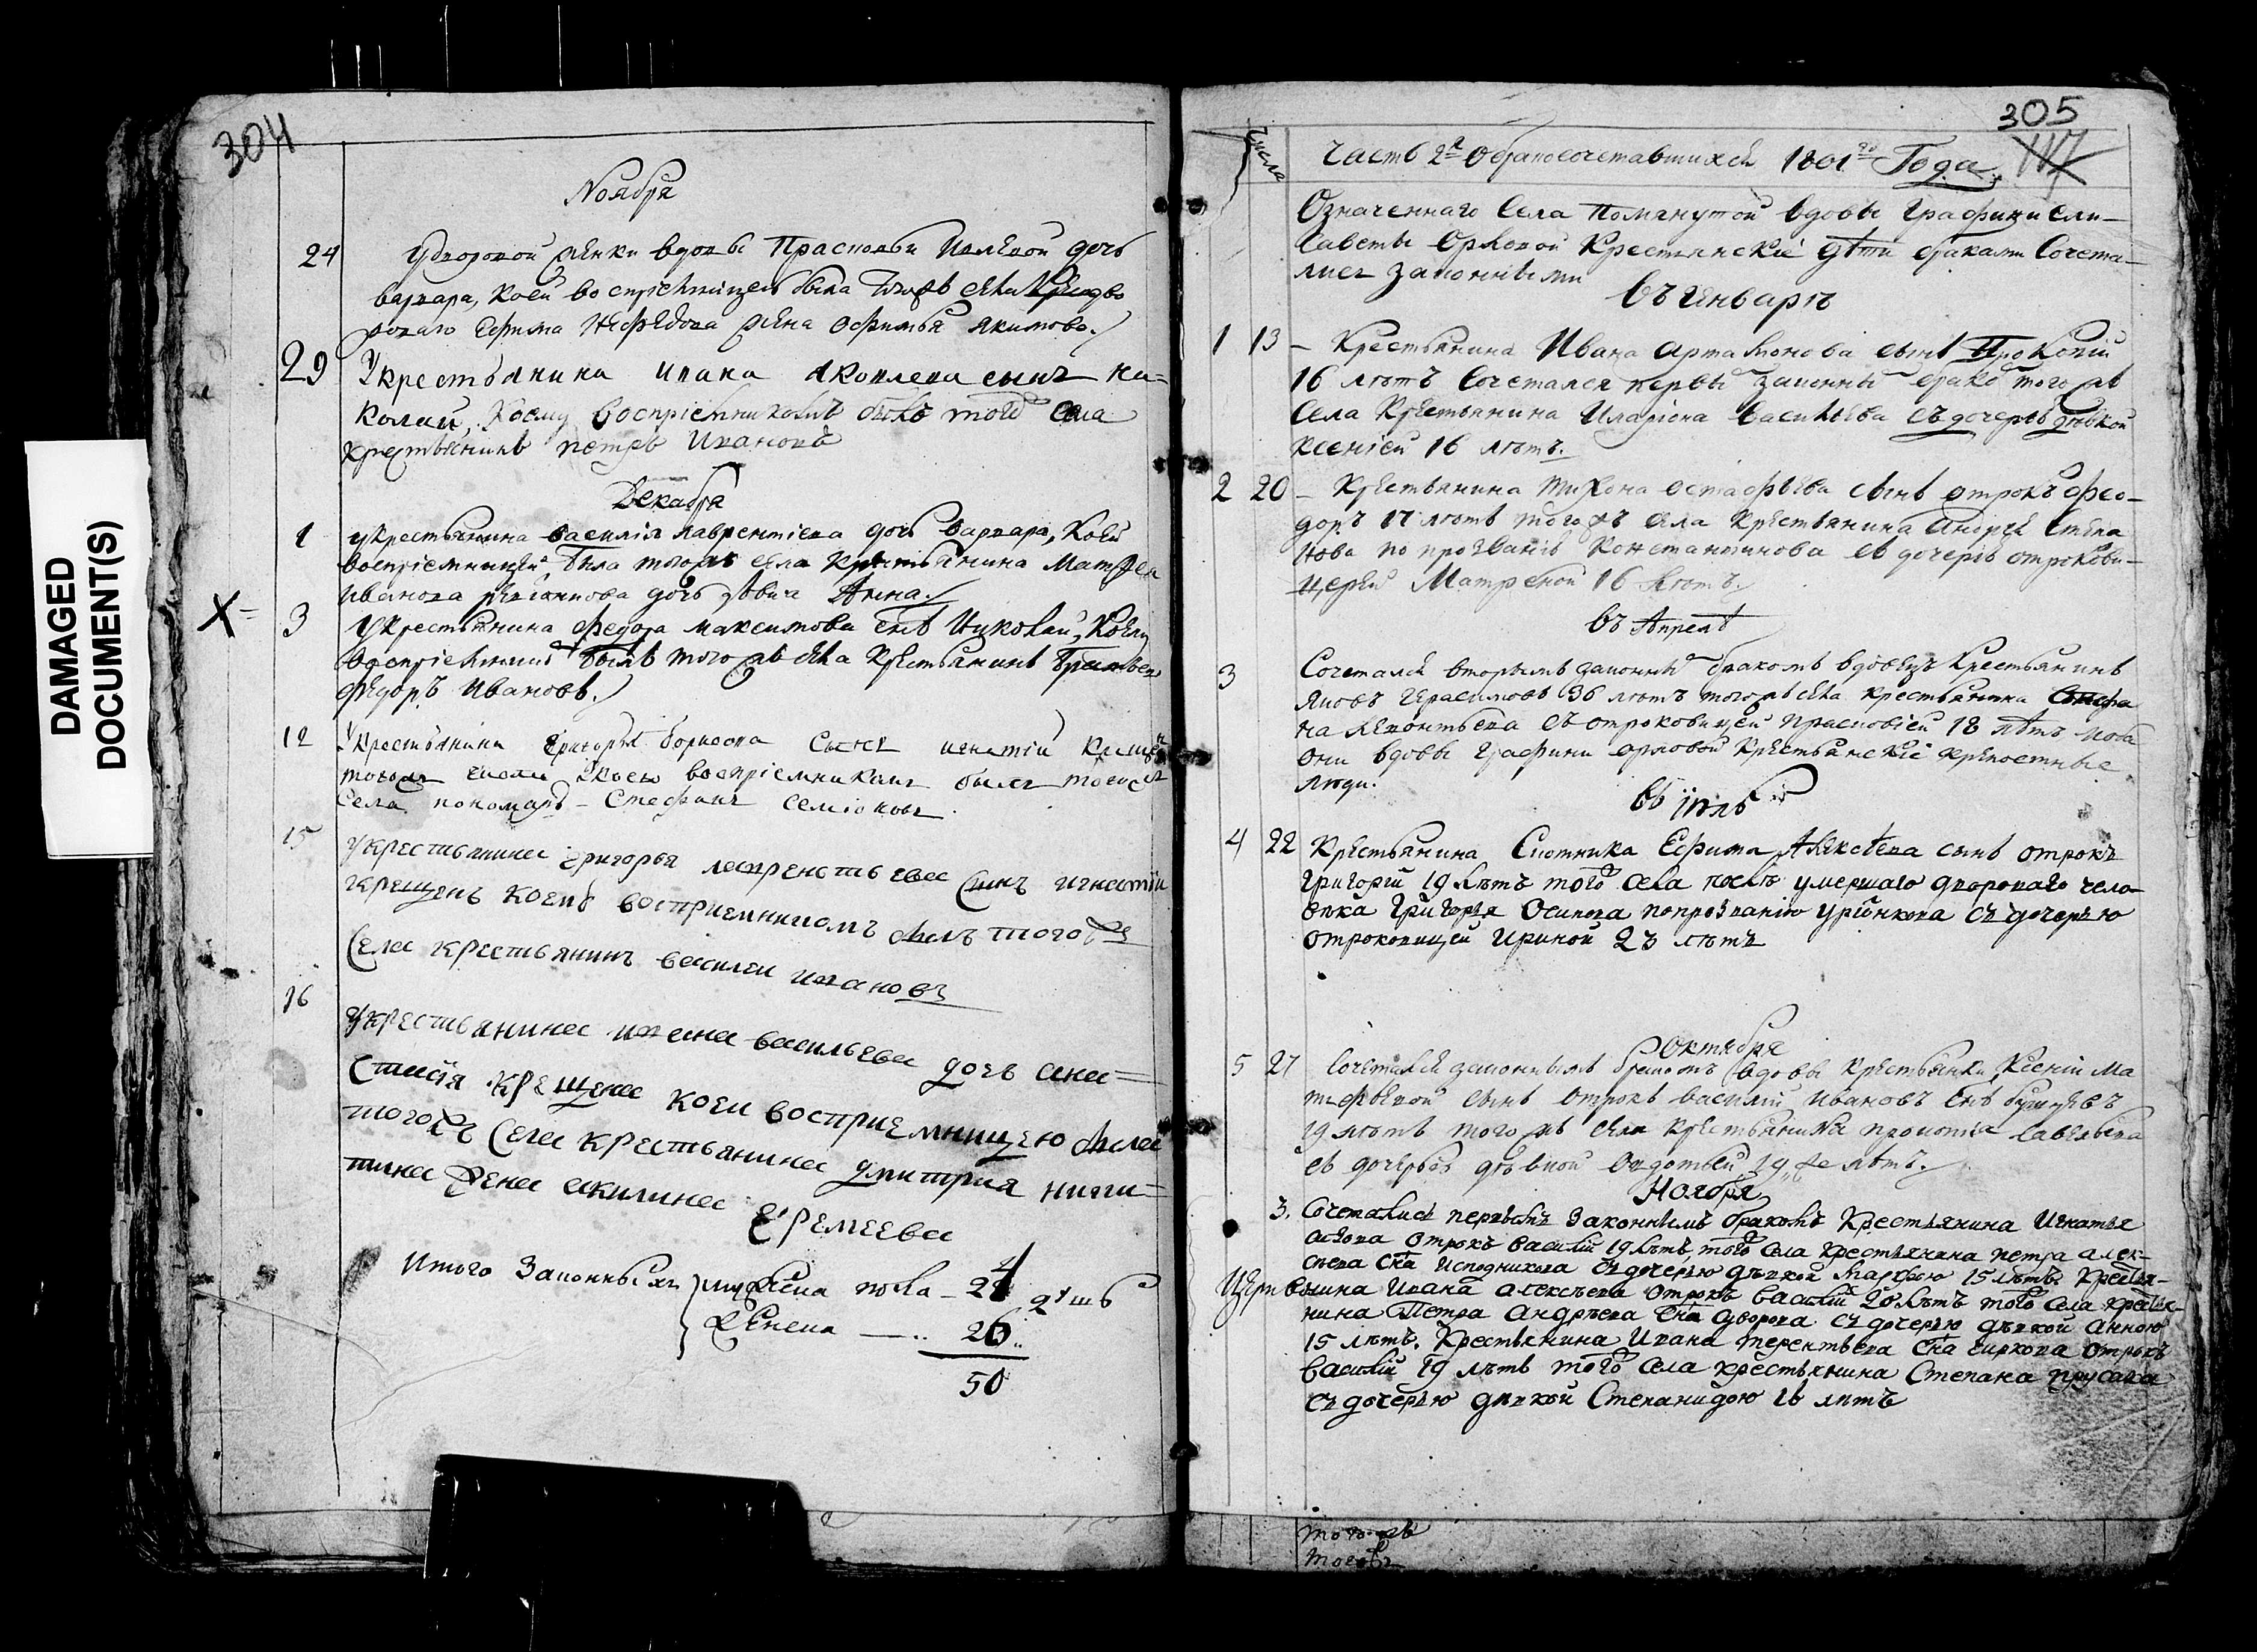 DAMAGED
DOCUMENT(S)
304
Ноября
24 У дворовой женки вдовы Прасковьи дочь
варвара, коей воспріемницею была тогожъ села
Ефима Нефедова жена Ефимья якимова.
29 У крестьянина ивана яковлева сынъ ни=
колай, коему воспріемникомъ былъ тогожъ села
крестьянинъ петръ Ивановъ
Декабря
1 у крестьянина василія лаврентіева дочь варвара, коей
воспріемницей была тогожъ села крестьянина Матфея
Иванова дочь девица Анна.
X= 3 У крестьянина федора максимова снъ Николай, коему
воспріемникъ былъ тогожъ села крестьянинъ
федоръ Ивановъ.
12 У крестьянина григорья борисова сынъ игнатій крещенъ
тогожъ числа коему воспріемникомъ былъ тогожъ
села пономарь – Стефанъ семіоновъ
15 У крестьянина григорья лаврентьева сынъ игнатій
крещенъ коему восприемникомъ былъ тогожъ
села крестьянинъ василеи ивановъ
16 У крестьянина ивана васильева дочь ана=
стасія крещена коеи восприемницею была
тогожъ села крестьянина дмитрия ники=
тина жена акилина Еремеева
Итого Законныхъ мужеска пола – 24 душъ
женска — 26
50
305
117
числа Часть 2я о бракосочетавшихся 1801го Года
Означеннаго Села Помянутой вдовы Графини Ели–
саветы Орловой Крестьянскіе дѣти браками Сочета–
лися законными
Въ Январѣ
1 13 – Крестьянина Ивана Артамонова сынъ Прокопій
16 лѣтъ Сочетался первы законны брако того жъ
села Крестьянина Иларіона Васильева съ дочерью дѣвкой
Ксеніей 16 лѣтъ.
2 20 – Крестьянина Тихона Остафьева сынъ отрокъ Фео–
доръ 17 лѣтъ того жъ села Крестьянина Андрея Степа
нова по прозванію Константинова съ дочерью отрокови–
церей Матреной 16 лѣтъ.
въ Апрелѣ
3 Сочетался вторымъ законны бракомъ вдовецъ Крестьянинъ
Яковъ Герасимовъ 36 лѣтъ тогожъ села крестьянина
на Леонтьева съ отроковицей Прасковіей 18 лѣтъ оба
они вдовы Графини орловой Крестьянскіе крѣпостные
люди.
въ іюлѣ
4 22 Крестьянина Скотника Ефима Алексѣева сынъ отрокъ
Григорій 19 лѣтъ того села послѣ умершаго двороваго чело–
вѣка Григорья Осипова попрозванію съ дочерью
отроковицей Ириной 23 лѣтъ
Октября
5 27 Сочетался законнымъ бракомъ вдовы крестьянки Ксеніи Ма
тфѣевой сынъ отрокъ василій Ивановъ снъ
19 лѣтъ того жъ села крестьянина прокопія Савельева
съ дочерью дѣвкой Авдотьей 19 лѣтъ.
Ноября
3. Сочетались первымъ законнымъ бракомъ Крестьянина Игнатья
отрокъ василій 19 лѣтъ, того села крестьянина петра алек–
сѣева сна Исподникова съ дочерью дѣвкой Марфою 15 лѣтъ. Крестья–
нина Ивана алексѣева отрокъ василій 20 лѣтъ того села крестья–
нина Петра Андрѣева сна суворова съ дочерью дѣвкой анною
15 лѣтъ. Крестьянина Ивана терентьева сна отрокъ
василій 19 лѣтъ того села крестьянина Степана прусака
съ дочерью дѣвкой Степанидою 16 лѣтъ
тогожъ
тогожъ